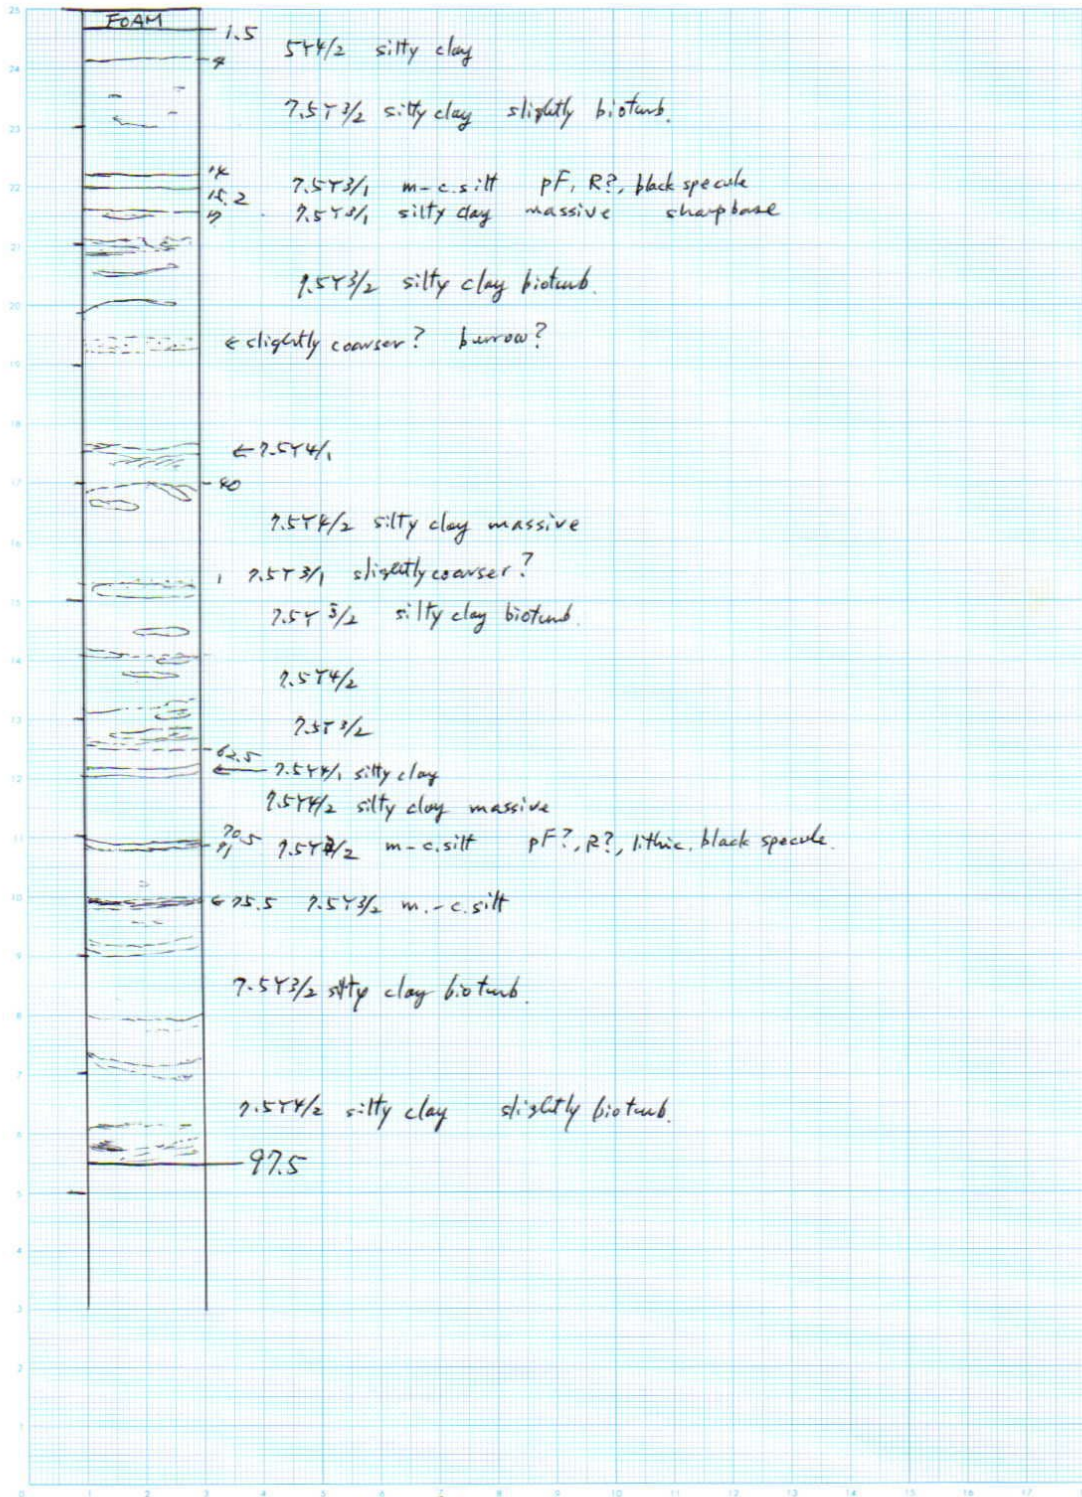 FOAM
1.5
5Y4/2 silty clay
4
7.5Y3/2 silty clay slightly bioturb.
14
7.5Y3/1 m-c.silt pF, R?, black specule
15.2
7.5Y3/1 silty clay massive sharp base
17
7.5Y3/2 silty clay bioturb.
← slightly coarser? burrow?
← 7.5Y4/1
40
7.5Y4/2 silty clay massive
7.5Y3/1 slightly coarser?
7.5Y3/2 silty clay bioturb.
7.5Y4/2
7.5Y3/2
62.5
← 7.5Y4/1 silty clay
7.5Y4/2 silty clay massive
70.5
71 7.5Y3/2 m-c.silt pF?, R?, lithic, black specule.
← 75.5 7.5Y3/2 m.-c.silt
7.5Y3/2 silty clay bioturb.
7.5Y4/2 silty clay slightly bioturb.
97.5
25
24
23
22
21
20
19
18
17
16
15
14
13
12
11
10
9
8
7
6
5
4
3
2
1
0 1 2 3 4 5 6 7 8 9 10 11 12 13 14 15 16 17